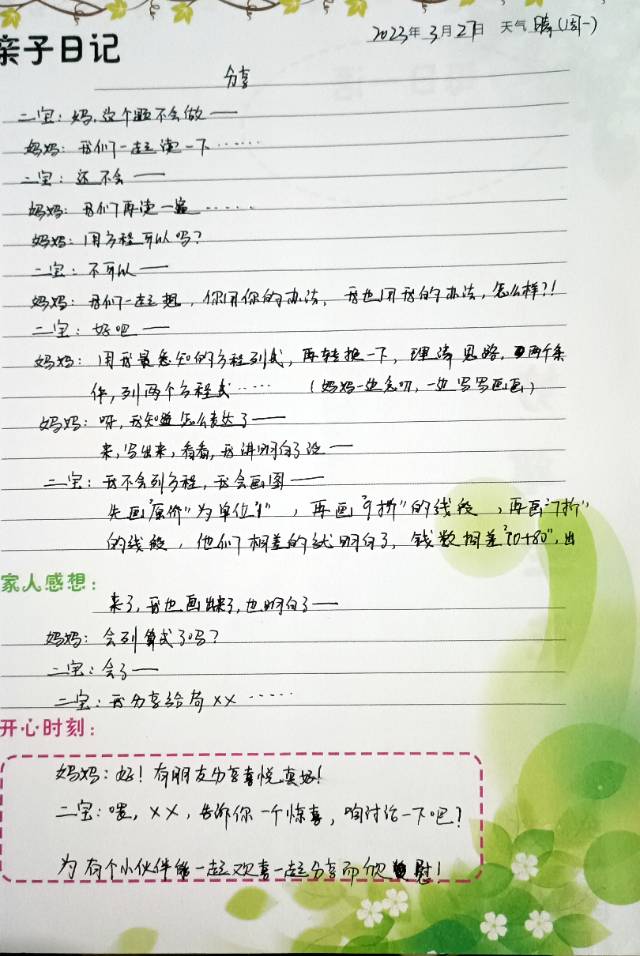 2023年3月27日 天气 晴(周一)
亲子日记
分享
二宝：妈，这个题不会做——
妈妈：我们一起读一下……
二宝：还不会——
妈妈：我们再读一遍……
妈妈：用方程可以吗？
二宝：不可以——
妈妈：我们一起想，你用你的办法，我也用我的办法，怎么样？！
二宝：好吧——
妈妈：用我最熟知的方程列式，再转换一下，理清思路，两个条
件，列两个方程式……（妈妈一边念叨，一边写写画画）
妈妈：呀，我知道怎么表达了——
来，写出来，看看，我讲明白了没——
二宝：我不会列方程，我会画图——
先画"原价"为单位"1"，再画"9折"的线段，再画"7折"
的线段，他们相差的就明白了，钱数相差"70+80"，出
家人感想：
来了，我也画出来了，也明白了——
妈妈：会列算式了吗？
二宝：会了——
二宝：我分享给荷××……
开心时刻：
妈妈：好！有朋友分享喜悦真好！
二宝：喂，××，告诉你一个惊喜，咱讨论一下吧？
为有个小伙伴能一起欢喜一起分享而欣慰！